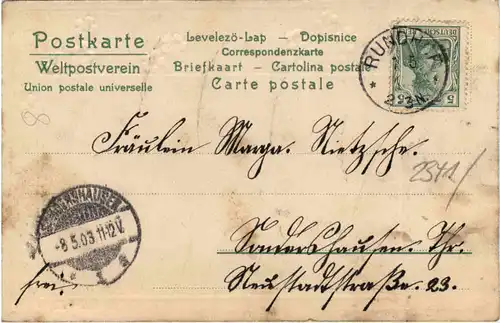 Postkarte
Weltpostverein
Union postale universelle
Levelező-Lap – Dopisnice
Correspondenzkarte
Briefkaart – Cartolina postale
Carte postale
DEUTSCHES
5
5
2-3N.
8
Fräulein Marga. Nietzsche.
2841/
-8.5.03.11-12V.
Sondershausen. Thr.
frei.
Neustadtstraße. 23.